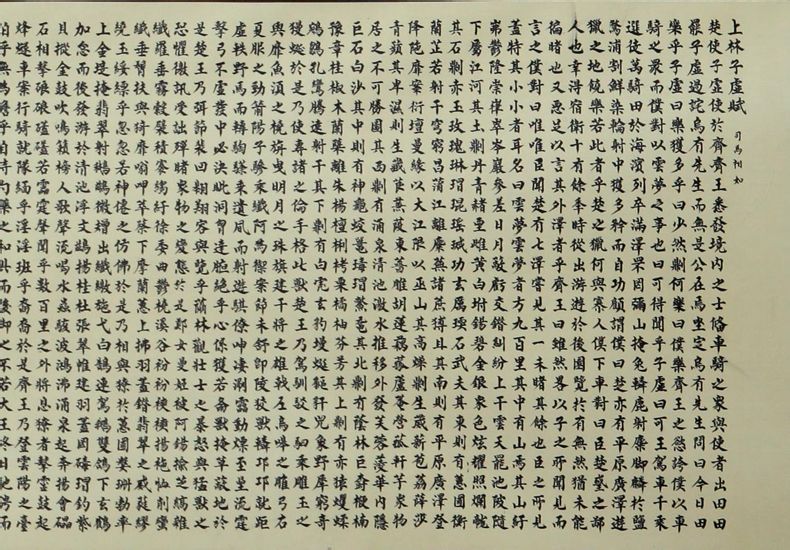 上林子虛賦
司馬相如
楚使子虛使於齊齊王悉發境內之士備車騎之衆與使者出田田
罷子虛過詫烏有先生而無是公在焉坐定烏有先生問曰今日田
樂乎子虛曰樂獲多乎曰少然則何樂曰僕樂齊王之欲誇僕以車
騎之衆而僕對以雲夢之事也曰可得聞乎子虛曰可王駕車千乘
選徒萬騎田於海濱列卒滿澤罘罔彌山掩兔轔鹿射麋脚轔於鹽
騖浦割鮮染輪射中獲多矜而自功顧謂僕曰楚亦有平原廣澤遊
獵之地饒樂若此者乎楚之獵何與寡人僕下車對曰臣楚國之鄙
人也幸得宿衛十有餘年時從出游游於後園覽於有無然猶未能
徧睹也又惡足以言其外澤者乎齊王曰雖然略以子之所聞見而
言之僕對曰唯唯臣聞楚有七澤嘗見其一未睹其餘也臣之所見
蓋特其小小者耳名曰雲夢雲夢者方九百里其中有山焉其山紆
茀鬱隆崇嵂崒岑巖參差日月蔽虧交錯糾紛上干雲天罷池陂陁
下屬江河其土則丹青赭堊雌黃白坿錫碧金銀衆色炫耀照爛龍
其石則赤玉玫瑰琳瑉琨珸瑊玏玄厲瑌石武夫其東則有蕙圃衡
蘭芷若射干穹窮昌蒲江離麋蕪諸蔗猼且其南則有平原廣澤登
降陁靡案衍壇曼緣以大江限以巫山其高燥則生葴薪苞荔薛莎
青薠其卑濕則生藏莨蒹葭東薔雕胡蓮藕菰蘆菴䕡軒芋衆物
居之不可勝圖其西則有涌泉清池激水推移外發芙蓉菱華內隱
巨石白沙其中則有神龜蛟鼉瑇瑁鱉黿其北則有陰林巨森楩楠
豫章桂椒木蘭蘗離朱楊樝梸梬栗橘柚芬芳其上則有赤猿蠷蝚
鵷鶵孔鸞騰遠射干其下則有白虎玄豹蟃蜒貙犴兕象野犀窮奇
獌狿於是乃使專諸之倫手格此獸楚王乃駕馴駁之駟乘雕玉之
輿靡魚須之橈旃曳明月之珠旗建干將之雄戟左烏嗥之雕弓右
夏服之勁箭陽子驂乘纖阿為御案節未舒即陵狡獸轔邛邛就距
虛軼野馬而轊騊駼乘遺風而射游騏儵眒凄浰雷動熛至星流霆
擊弓不虛發中必決眥洞胸達腋絕乎心係獲若雨獸掩草蔽地於
是楚王乃弭節裴回翱翔容與覽乎陰林觀壯士之暴怒與猛獸之
恐懼徼受詘殫睹衆物之變態於是鄭女曼姬被阿錫揄紵縞雜
纖羅垂霧縠襞積褰縐紆徐委曲鬱橈谿谷衯衯裶裶揚袘恤削蜚
纖垂髾扶與猗靡噏呷萃蔡下摩蘭蕙上拂羽蓋錯翡翠之威蕤繆
繞玉綏縹乎忽忽若神僊之仿佛於是乃相與獠於蕙圃媻珊勃窣
上金堤掩翡翠射鵕鸃微矰出纖繳施弋白鵠連駕鵝雙鶬下玄鶴
加怠而後發游於清池浮文鷁揚桂枻張翠帷建羽蓋罔瑇瑁鉤紫
貝摐金鼓吹鳴籟榜人歌聲流喝水蟲駭波鴻沸涌泉起奔揚會礧
石相擊硠硠礚礚若雷霆之聲聞乎數百里之外將息獠者擊靈鼓起
烽燧車案行騎就隊纚乎淫淫班乎裔裔於是楚王乃登陽雲之臺
泊乎無為澹乎自持勺藥之和具而後御之不若大王終日馳騁而